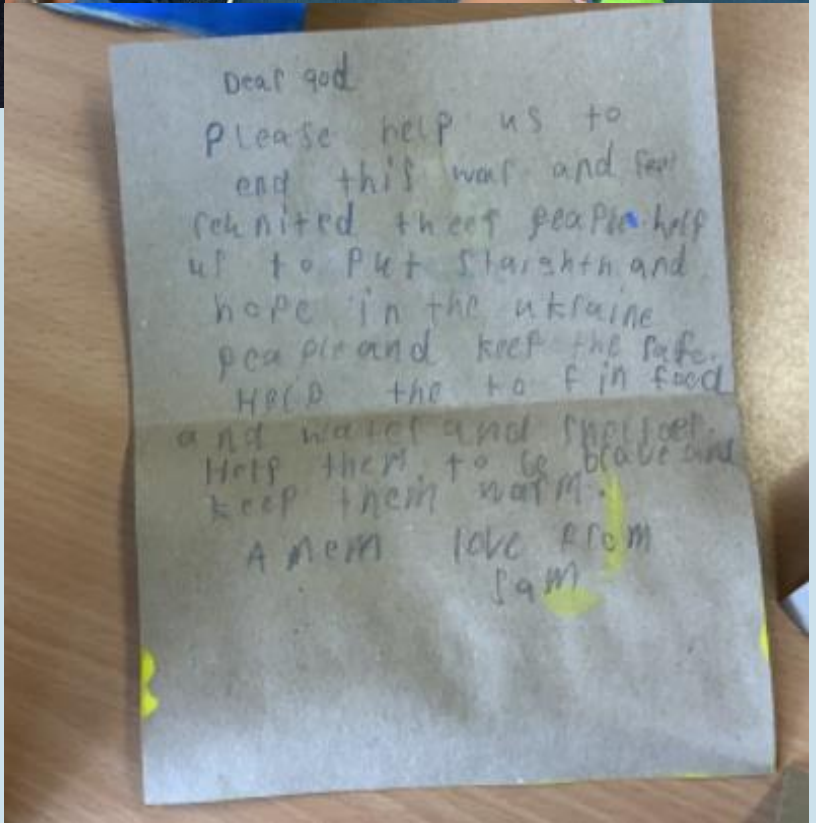 Dear god
Please help us to
end this war and feel
reunited thees peaple help
us to put straighth and
hope in the ukraine
peaple and keep the safe.
Help the to fin food
and water and shelter.
Help them to be brave and
keep them warm.
Amem love from
Sam